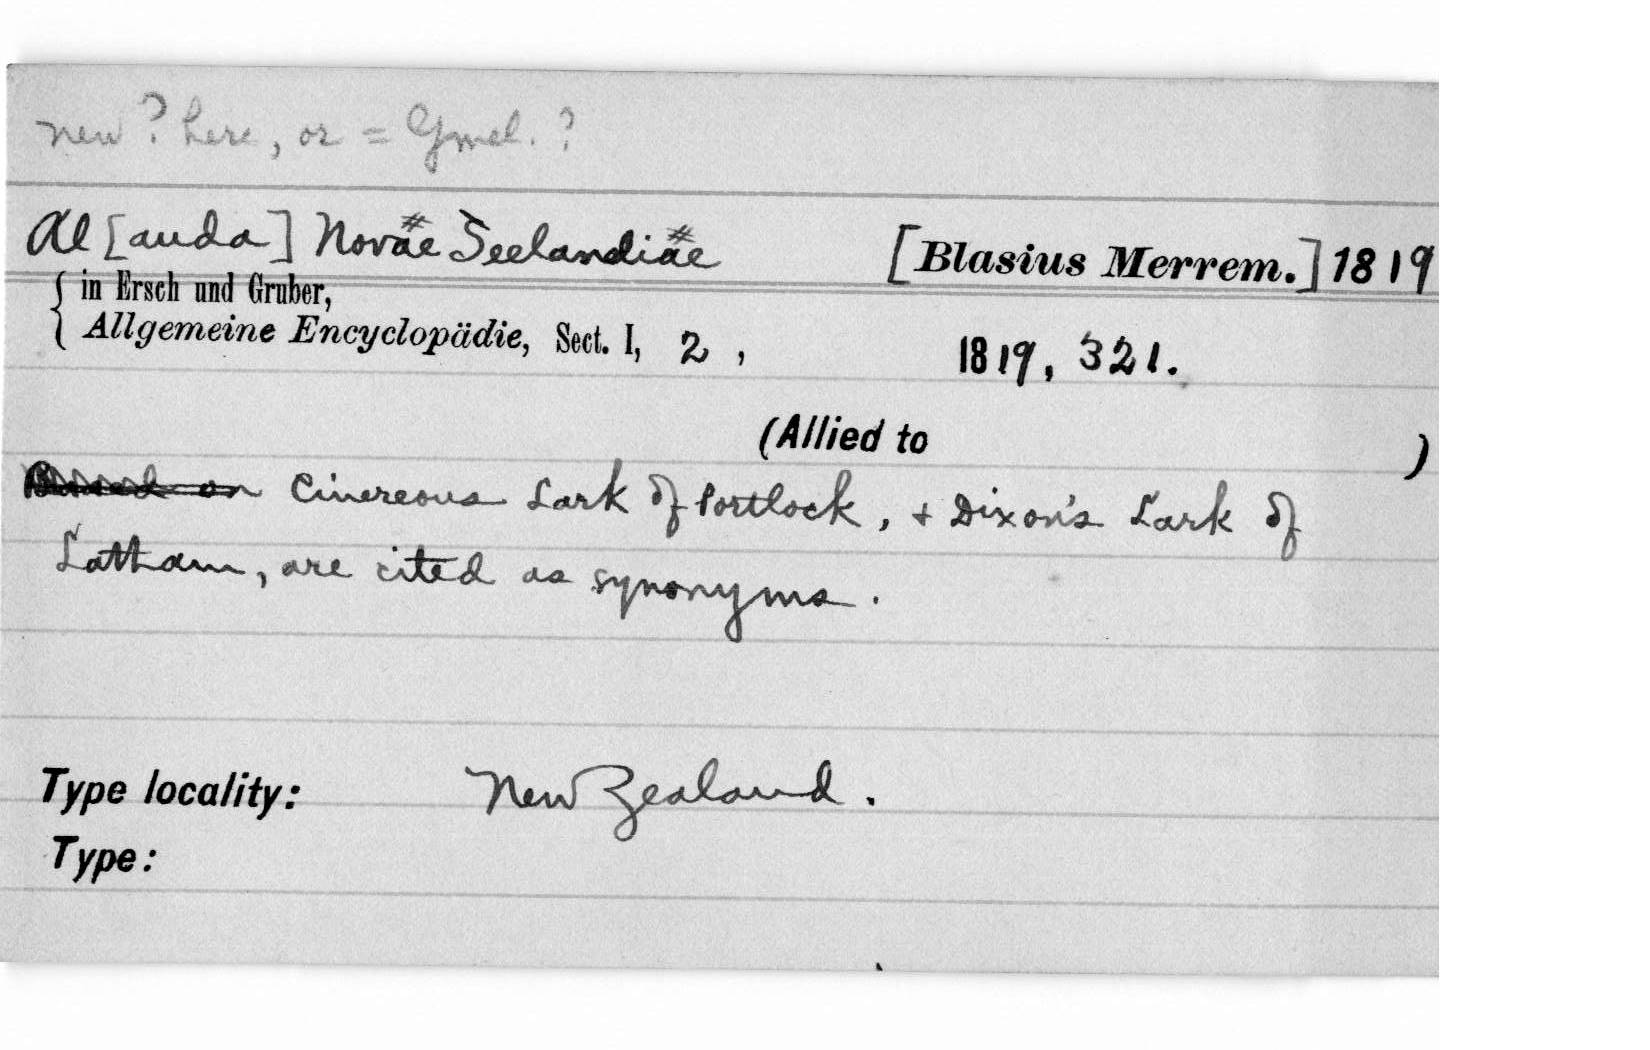 new? here, or = Gmel. ?
Al[auda] Novae Seelandiae [Blasius Merrem.] 1819
in Ersch und Gruber,
Allgemeine Encyclopädie, Sect. I, 2, 1819, 321.
(Allied to )
Based on Cinereous Lark of Portlock, & Dixon's Lark of
Latham, are cited as synonyms.
Type locality: New Zealand.
Type: